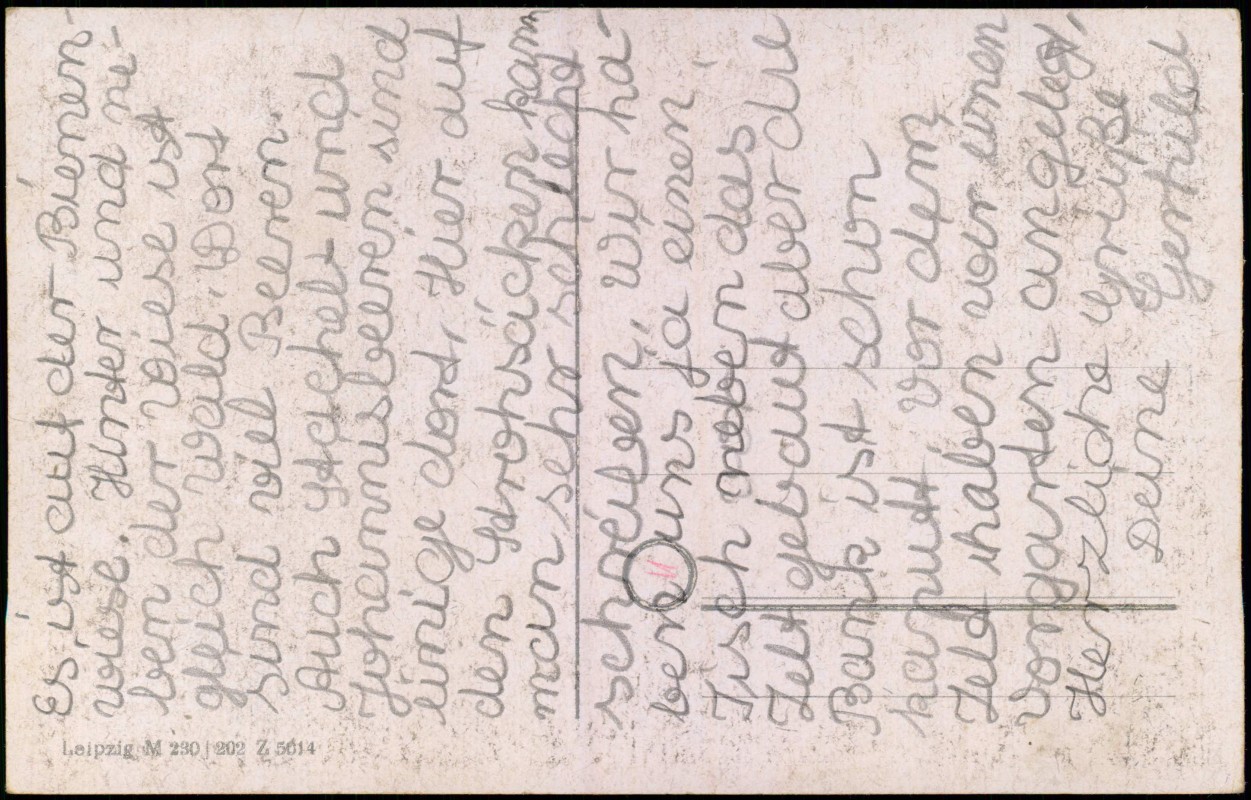 Es ist auf der Bienen-
wiese. Hinter und ne-
ben der Wiese ist
gleich Wald. Dort
sind viel Beeren.
Auch Stachel- und
Johannisbeeren sind
einige dort. Hier auf
den Strohsäcken kann
man sehr schlecht
schreiben. Wir ha-
ben uns ja einen
Tisch neben das
Zelt gebaut aber die
Bank ist schon
kaputt. Vor dem
Zelt haben wir einen
Vorgarten angelegt,
Herzliche Grüße
Deine Gerhild
M
Leipzig M 230 | 202 Z 5614